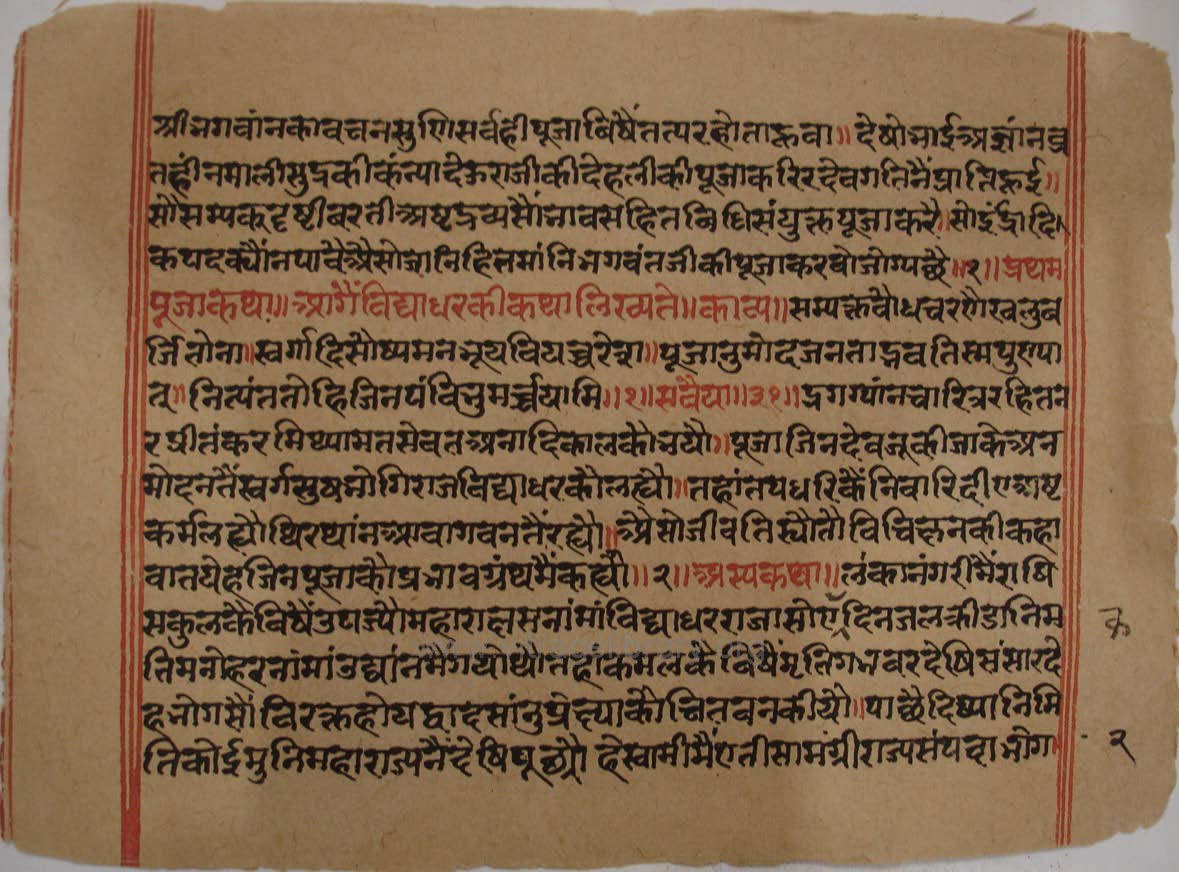 श्रीभगवांनकावचनसुणिसर्वहीपूजाविषैंतत्परहोताहूवा॥देषोभाईअज्ञांनव्र
तहींनमालीसुद्रकीकंन्यादेऊराजीकीदेहलीकीपूजाकरिरदेवगतिनैंप्राप्तिहूई॥
सोसम्यकदृष्टीवरतीअष्टद्रव्यसौंभावसहितविधिसंयुक्तपूजाकरै॥सोइंद्रादि
कपदक्यौंनपावैअैसोजांनिहितमांनिभगवंतजीकीपूजाकरवोजोग्यछै॥१॥प्रथम
पूजाकथा॥आगैंविद्याधरकीकथालिख्यते॥काव्य॥सम्यक्तवोधचरणेखलुव
र्जितोना॥स्वर्गादिसौष्यमनभूयवियच्चरेद्रा॥पूजानुमोदजनताद्भवतिस्मपुण्या
त्॥नित्यंततोहिजिनपंविभुमर्च्चयामि॥१॥सवैया॥३१॥द्रगग्यांनचारित्ररहितन
रप्रीतंकरमिथ्यामतसेवतअनादिकालकोभयौ॥पूजाजिनदेवजूकीजाकेअन
मोदनतैंस्वर्गसुषभोगिराजविद्याधरकौलह्यौ॥तहांतपधरिकैंनिवारिदीएअष्ट
कर्मलह्यौथिरथांनआवागवनतैंरह्यौ॥अैसोजीवतिस्यौतौविचिह्ननकीकहा
वातयेहजिनपूजाकौप्रभावग्रंथमैंकह्यौ॥२॥अस्यकथा॥लंकानंगरीमैंराषि
सकुलकैविषैंउपज्यौमहाराक्षसनांमांविद्याधरराजासोएदिनजलक्रीडानिम
तिमनोहरनांमांउद्यांनमैंगयोथौतहांकमलकैविषैंमृतिगभवरदेषिसंसारदे
हभोगसौंविरक्तहोयद्वादसांनुप्रेक्ष्याकौचितवनकीयौ॥पाछैदिष्यानिमि
तिकोईमुनिमहाराज्यनैंदेषिपूछ्यौहेस्वामीमैंएतीसामंग्रीराज्यसंपदाभोग
क
२